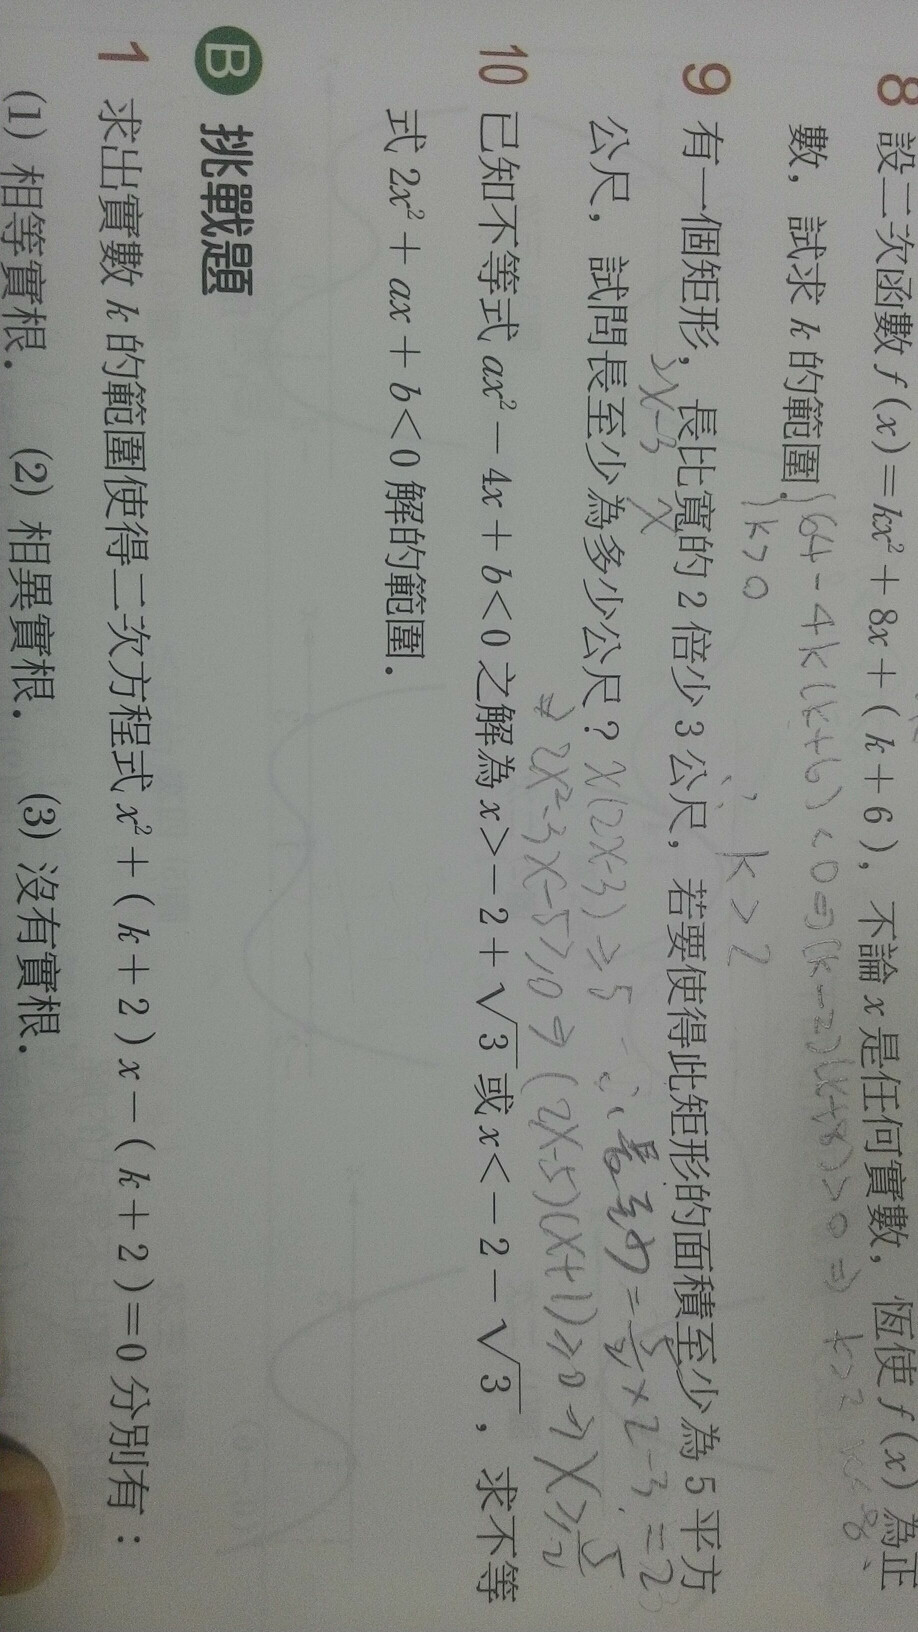 8 設二次函數 f(x)=kx²+8x+(k+6)，不論 x 是任何實數，恆使 f(x) 為正
數，試求 k 的範圍.
{64-4k(k+6)<0⇒(k-2)(k+8)>0⇒ k>2
k>0
∴ k>2
9 有一個矩形，長比寬的 2 倍少 3 公尺，若要使得此矩形的面積至少為 5 平方
2x-3 x
公尺，試問長至少為多少公尺？ x(2x-3)≥5 ∴最多少=5/2×2-3=2
⇒2x²-3x-5≥0⇒(2x-5)(x+1)≥0⇒x≥5/2
10 已知不等式 ax²-4x+b<0 之解為 x>-2+√3 或 x<-2-√3，求不等
式 2x²+ax+b<0 解的範圍.
B 挑戰題
1 求出實數 k 的範圍使得二次方程式 x²+(k+2)x-(k+2)=0 分別有：
(1) 相等實根. (2) 相異實根. (3) 沒有實根.